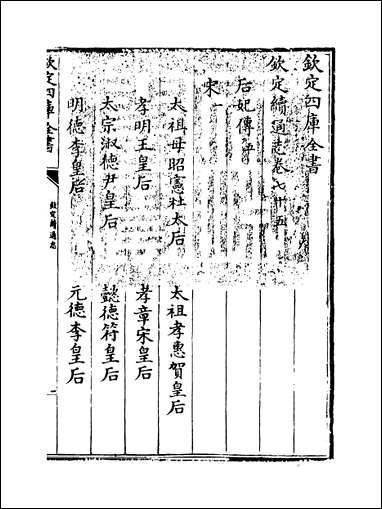 欽定四庫全書
欽定續通志卷七十五
后妃傳
宋一
太祖母昭憲杜太后 太祖孝惠賀皇后
孝明王皇后 孝章宋皇后
太宗淑德尹皇后 懿德符皇后
明德李皇后 元德李皇后
欽定四庫全書
欽定續通志